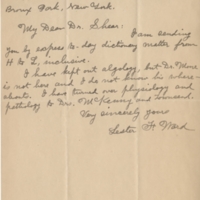 Bronx Park, New York.
My Dear Dr. Shear:
I am sending
you by express to-day dictionary matter from
H to L, inclusive.
I have kept out algology, but Dr. Howe
is not here and I do not know his where-
abouts. I has turned over physiology and
pathology to Dr. McKenney and
Very sincerely yours
Lester F. Ward